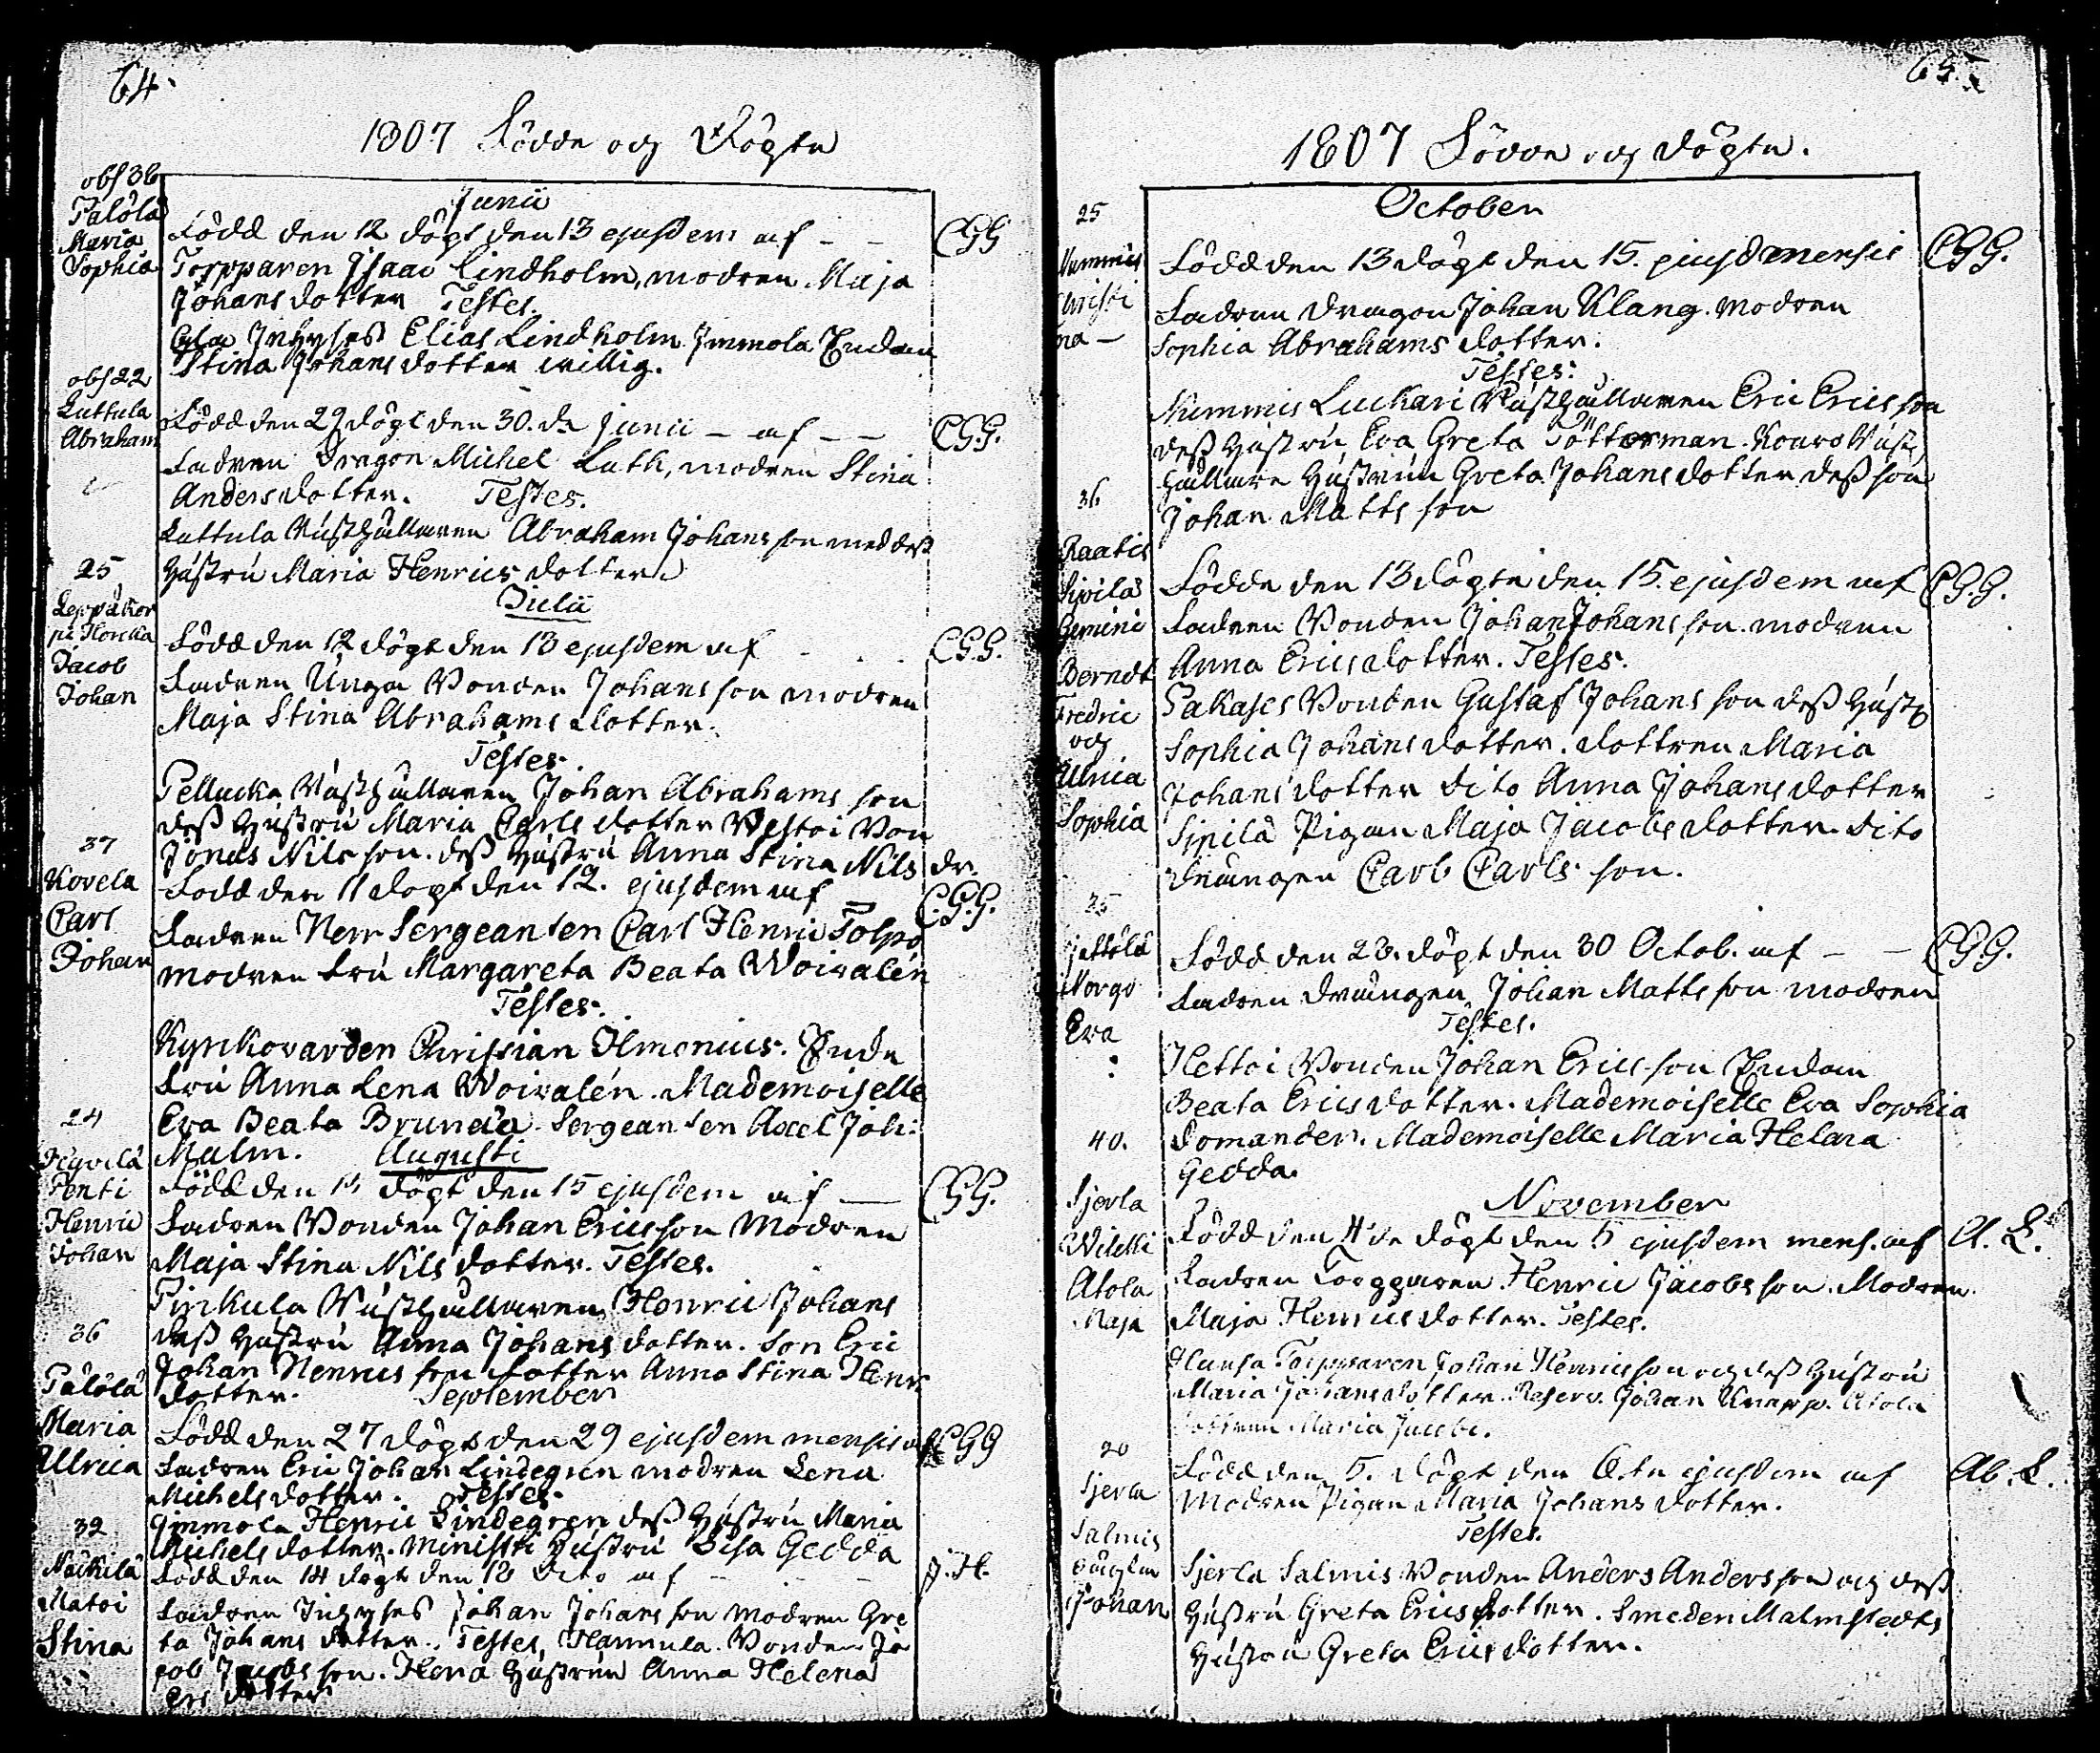 64.
1807 Födde och Döpte
obs 36
Palölä
Maria
Sophia
Junii
Född den 12 döpt den 13 ejusdem af - - CGG
Torpparen Isaac Lindholm, modren Maja
Johansdotter Testes.
Inhyses Elias Lindholm Immola Enkan
Stina Johansdotter willig.
obs 22
Luttula
Abraham
Född den 29 döpt den 30. de Junii - af - - CGG.
Fadren Dragon Michel Luth, modren Stina
Andersdotter. Testes.
Luttula Rusthållaren Abraham Johansson med dess
hustru Maria Henricsdotter
Julii
25
Leppäkor
pi Horcka
Jacob
Johan
Född den 12 döpt den 13 ejusdem af - - - CGG.
Fadren Unga Bonden Johansson modren
Maja Stina Abrahamsdotter.
Testes.
Pellacka Rusthållaren Johan Abrahamsson
dess hustru Maria Carlsdotter Westoi Bon
Jonas Nilsson. dess hustru Anna Stina Nils dr.
37
Kovela
Carl
Johan
Född den 11 döpt den 12. ejusdem af - CGG.
Fadren Herr Sergeanten Carl Henric Tolpo
modren Fru Margareta Beata Woivalén
Testes.
Kyrkovärden Christian Ilmonius. Enke
Fru Anna Lena Woivalén. Mademoiselle
Eva Beata Sergeanten Axel Joh:
Malm. Augusti
24
Hyvelä
Penti
Henric
Johan
Född den döpt den 15 ejusdem af - CGG.
Fadren Bonden Johan Ericsson Modren
Maja Stina Nilsdotter. Testes.
Pirkula Rusthållaren Henric Johans
dess hustru Anna Johansdotter. Son Eric
Johan Henricsson dotter Anna Stina Henr
dotter. September
36
Palölä
Maria
Ulrica
Född den 27 döpt den 29 ejusdem mensis af CGG
Fadren Eric Johan Lindegren modren Lena
Michelsdotter. Testes.
Immola Henric Lindegren dess hustru Maria
Michelsdotter. Ministri hustru Lisa Gedda
32
Näckilä
Matoi
Stina
Född den 14 döpt den 18 dito af - - - J.H.
Fadren Inhyses Johan Johansson modren Gre
ta Johansdotter. Testes, Hannula Bonden Ja
cob Jacobsson. Hena hustrun Anna Helena
Ers dotter
65.
1807 Födde och döpte.
October
25
Nummis
Christi
na -
Född den 13 döpt den 15. ejusd mensis CGG.
Fadren dragon Johan Klang. modren
Sophia Abrahams dotter.
Testes:
Nummis Luckari Rusthållaren Eric Ericsson
dess hustru Eva Greta Pötterman. Kouro Rust
hållare hustrun Greta Johansdotter dess son
Johan Mattsson
36
Raatis
Sipilä
Gemini
Berndt
Fredric
och
Ulrica
Sophia
Födde den 13 döpte den 15. ejusdem af CGG.
Fadren Bonden Johan Johansson. modren
Anna Ericsdotter. Testes.
Sakases Bonden Gustaf Johansson dess hust
Sophia Johansdotter. dottren Maria
Johansdotter dito Anna Johansdotter
Sipilä Pigan Maja Jacobsdotter. dito
drängen Carl Carls son.
25
Eva
Född den 28. döpt den 30 Octob. af - - CGG.
Fadren drängen Johan Mattsson modren
Testes.
Hettoi Bonden Johan Ericsson Enkan
Beata Ericsdotter. Mademoiselle Eva Sophia
Domander. Mademoiselle Maria Helena
Gedda.
November
40.
Sjerla
Wiletti
Atola
Maja
Född den 4de döpt den 5 ejusdem mens. af A. L.
Fadren Torpparen Henric Jacobsson. Modren
Maja Henricsdotter. Testes.
Torpparen Johan Henricsson och dess hustru
Maria Johansdotter. Reserv. Johan Knapp. Atola
dottren Maria Jacobs.
20
Sjerla
Salmis
oäckta
Johan
Född den 5. döpt den 6te ejusdem af Ab. L.
Modren Pigan Maria Johansdotter.
Testes.
Sjerla Salmis Bonden Anders Andersson och dess
hustru Greta Ericsdotter. Smeden Malmstedts
hustru Greta Ericsdotter.